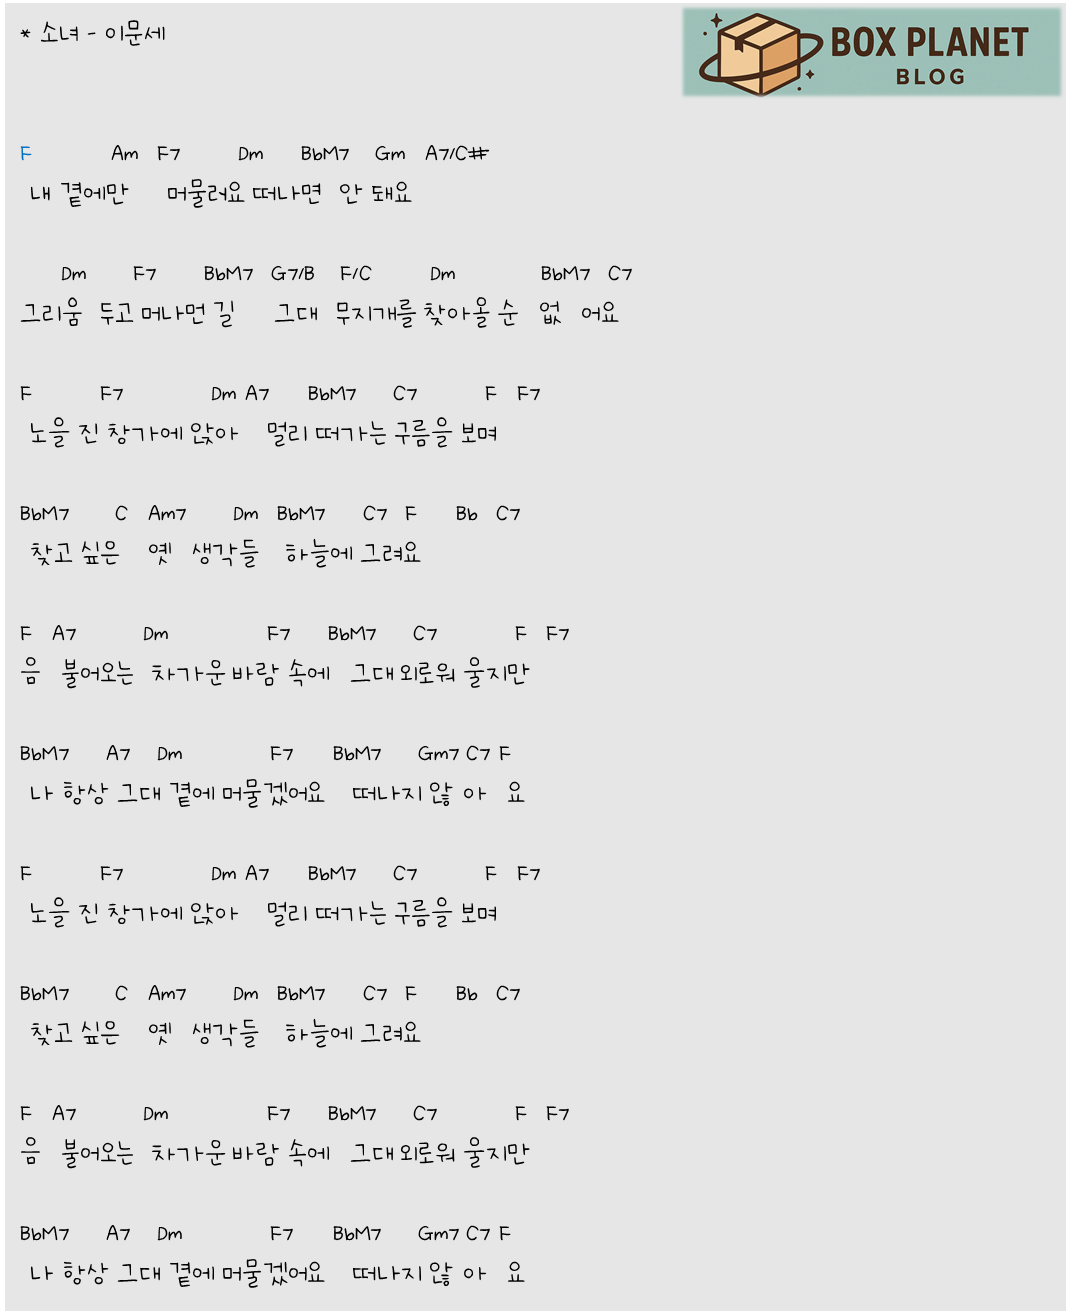 * 소녀 - 이문세
BOX PLANET
BLOG
F Am F7 Dm BbM7 Gm A7/C#
내 곁에만 머물러요 떠나면 안 돼요
Dm F7 BbM7 G7/B F/C Dm BbM7 C7
그리움 두고 머나먼 길 그대 무지개를 찾아올 순 없 어요
F F7 Dm A7 BbM7 C7 F F7
노을 진 창가에 앉아 멀리 떠가는 구름을 보며
BbM7 C Am7 Dm BbM7 C7 F Bb C7
찾고 싶은 옛 생각들 하늘에 그려요
F A7 Dm F7 BbM7 C7 F F7
음 불어오는 차가운 바람 속에 그대 외로워 울지만
BbM7 A7 Dm F7 BbM7 Gm7 C7 F
나 항상 그대 곁에 머물겠어요 떠나지 않 아 요
F F7 Dm A7 BbM7 C7 F F7
노을 진 창가에 앉아 멀리 떠가는 구름을 보며
BbM7 C Am7 Dm BbM7 C7 F Bb C7
찾고 싶은 옛 생각들 하늘에 그려요
F A7 Dm F7 BbM7 C7 F F7
음 불어오는 차가운 바람 속에 그대 외로워 울지만
BbM7 A7 Dm F7 BbM7 Gm7 C7 F
나 항상 그대 곁에 머물겠어요 떠나지 않 아 요